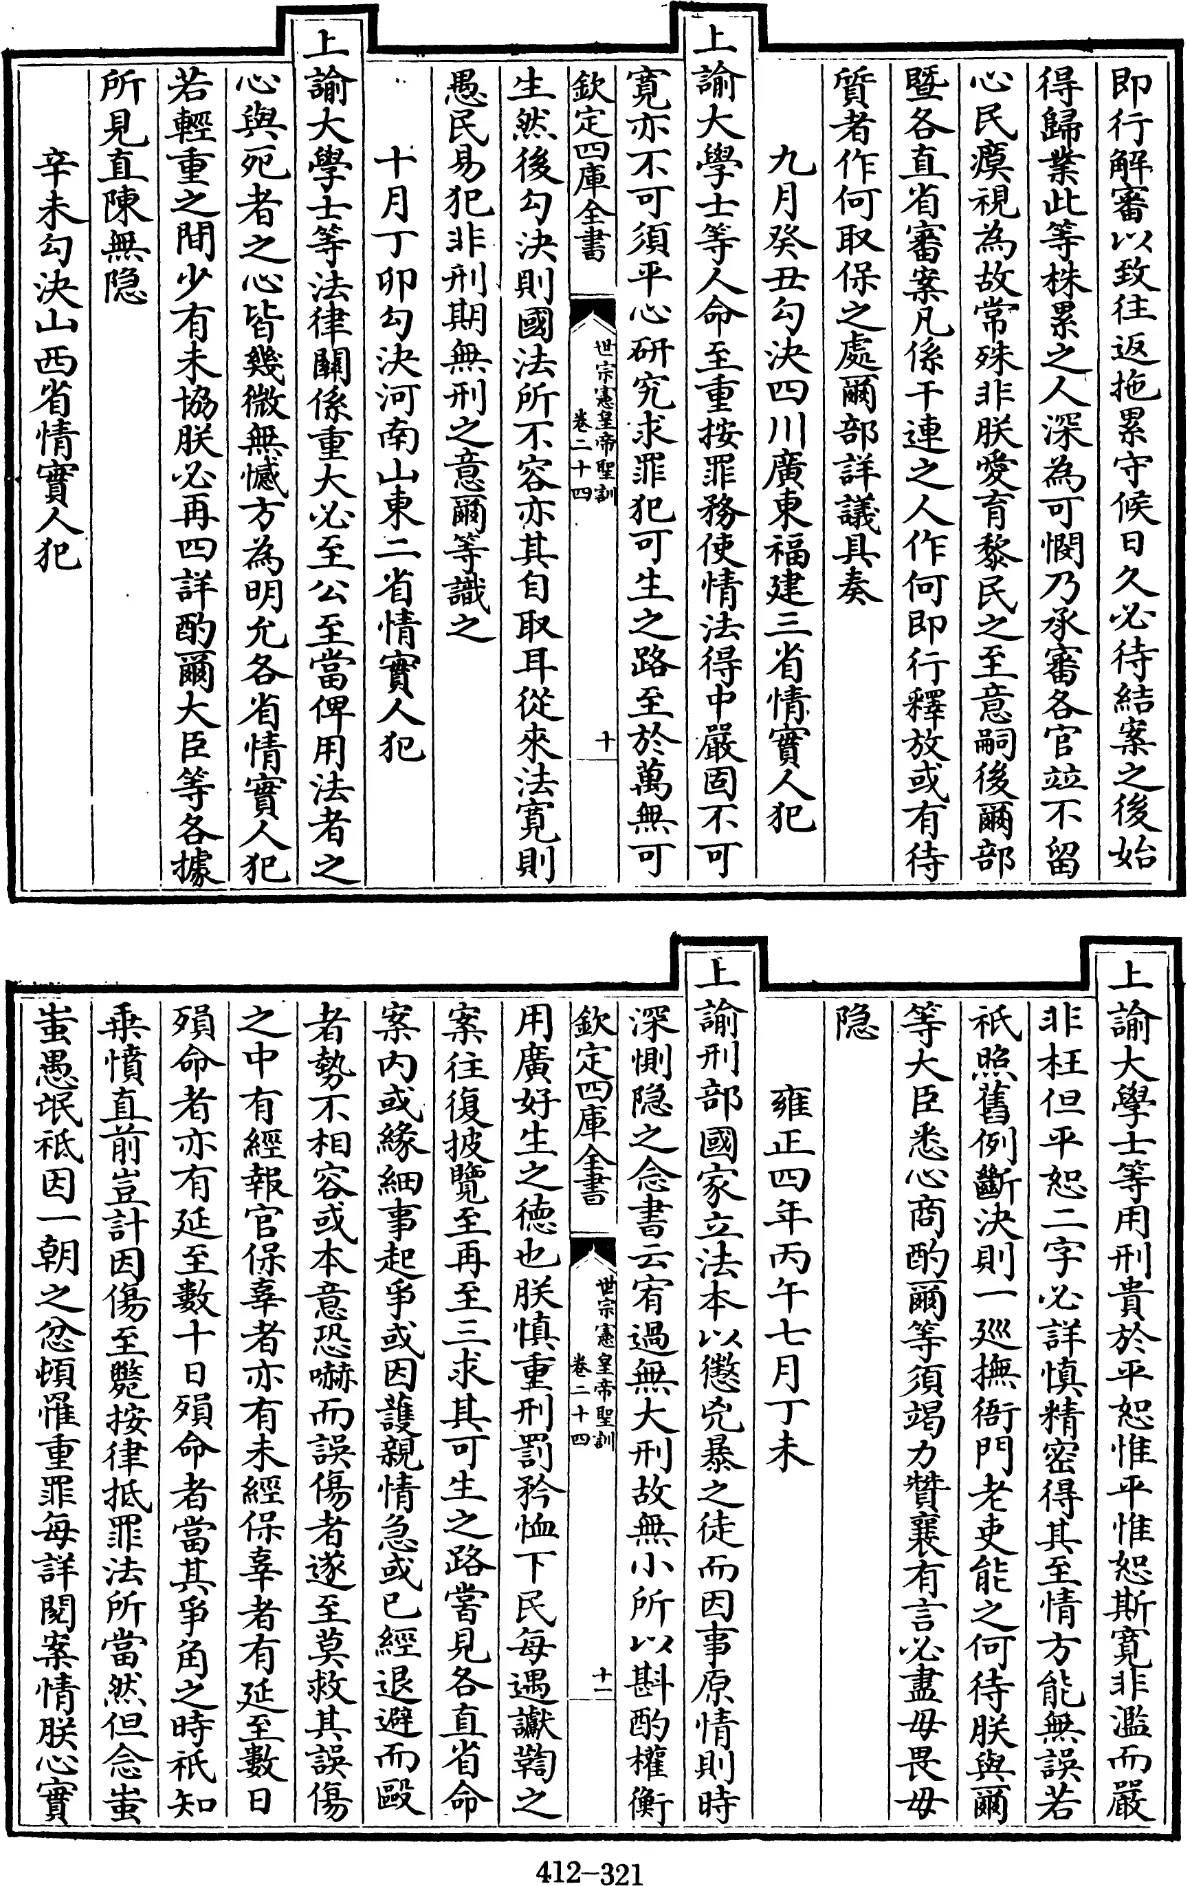 即行解審以致往返拖累守候日久必待結案之後始
得歸業此等株累之人深為可憫乃承審各官竝不留
心民瘼視為故常殊非朕愛育黎民之至意嗣後爾部
暨各直省審案凡係干連之人作何即行釋放或有待
質者作何取保之處爾部詳議具奏
九月癸丑勾決四川廣東福建三省情實人犯
上諭大學士等人命至重按罪務使情法得中嚴固不可
寛亦不可須平心研究求罪犯可生之路至於萬無可
欽定四庫全書
世宗憲皇帝聖訓
卷二十四
十
生然後勾決則國法所不容亦其自取耳從來法寛則
愚民易犯非刑期無刑之意爾等識之
十月丁卯勾決河南山東二省情實人犯
上諭大學士等法律關係重大必至公至當俾用法者之
心與死者之心皆幾微無憾方為明允各省情實人犯
若輕重之間少有未協朕必再四詳酌爾大臣等各據
所見直陳無隐
辛未勾決山西省情實人犯
上諭大學士等用刑貴於平恕惟平惟恕斯寛非濫而嚴
非枉但平恕二字必詳慎精密得其至情方能無誤若
祇照舊例斷決則一巡撫衙門老吏能之何待朕與爾
等大臣悉心商酌爾等須竭力贊襄有言必盡毋畏毋
隐
雍正四年丙午七月丁未
上諭刑部國家立法本以懲兇暴之徒而因事原情則時
深惻隐之念書云宥過無大刑故無小所以斟酌權衡
欽定四庫全書
世宗憲皇帝聖訓
卷二十四
十一
用廣好生之德也朕慎重刑罰矜恤下民每遇讞鞫之
案往復披覽至再至三求其可生之路嘗見各直省命
案内或緣細事起爭或因護親情急或已經退避而毆
者勢不相容或本意恐嚇而誤傷者遂至莫救其誤傷
之中有經報官保辜者亦有未經保辜者有延至數日
殞命者亦有延至數十日殞命者當其爭角之時祇知
乘憤直前豈計因傷至斃按律抵罪法所當然但念蚩
蚩愚氓祇因一朝之忿頓罹重罪每詳閱案情朕心實
412-321